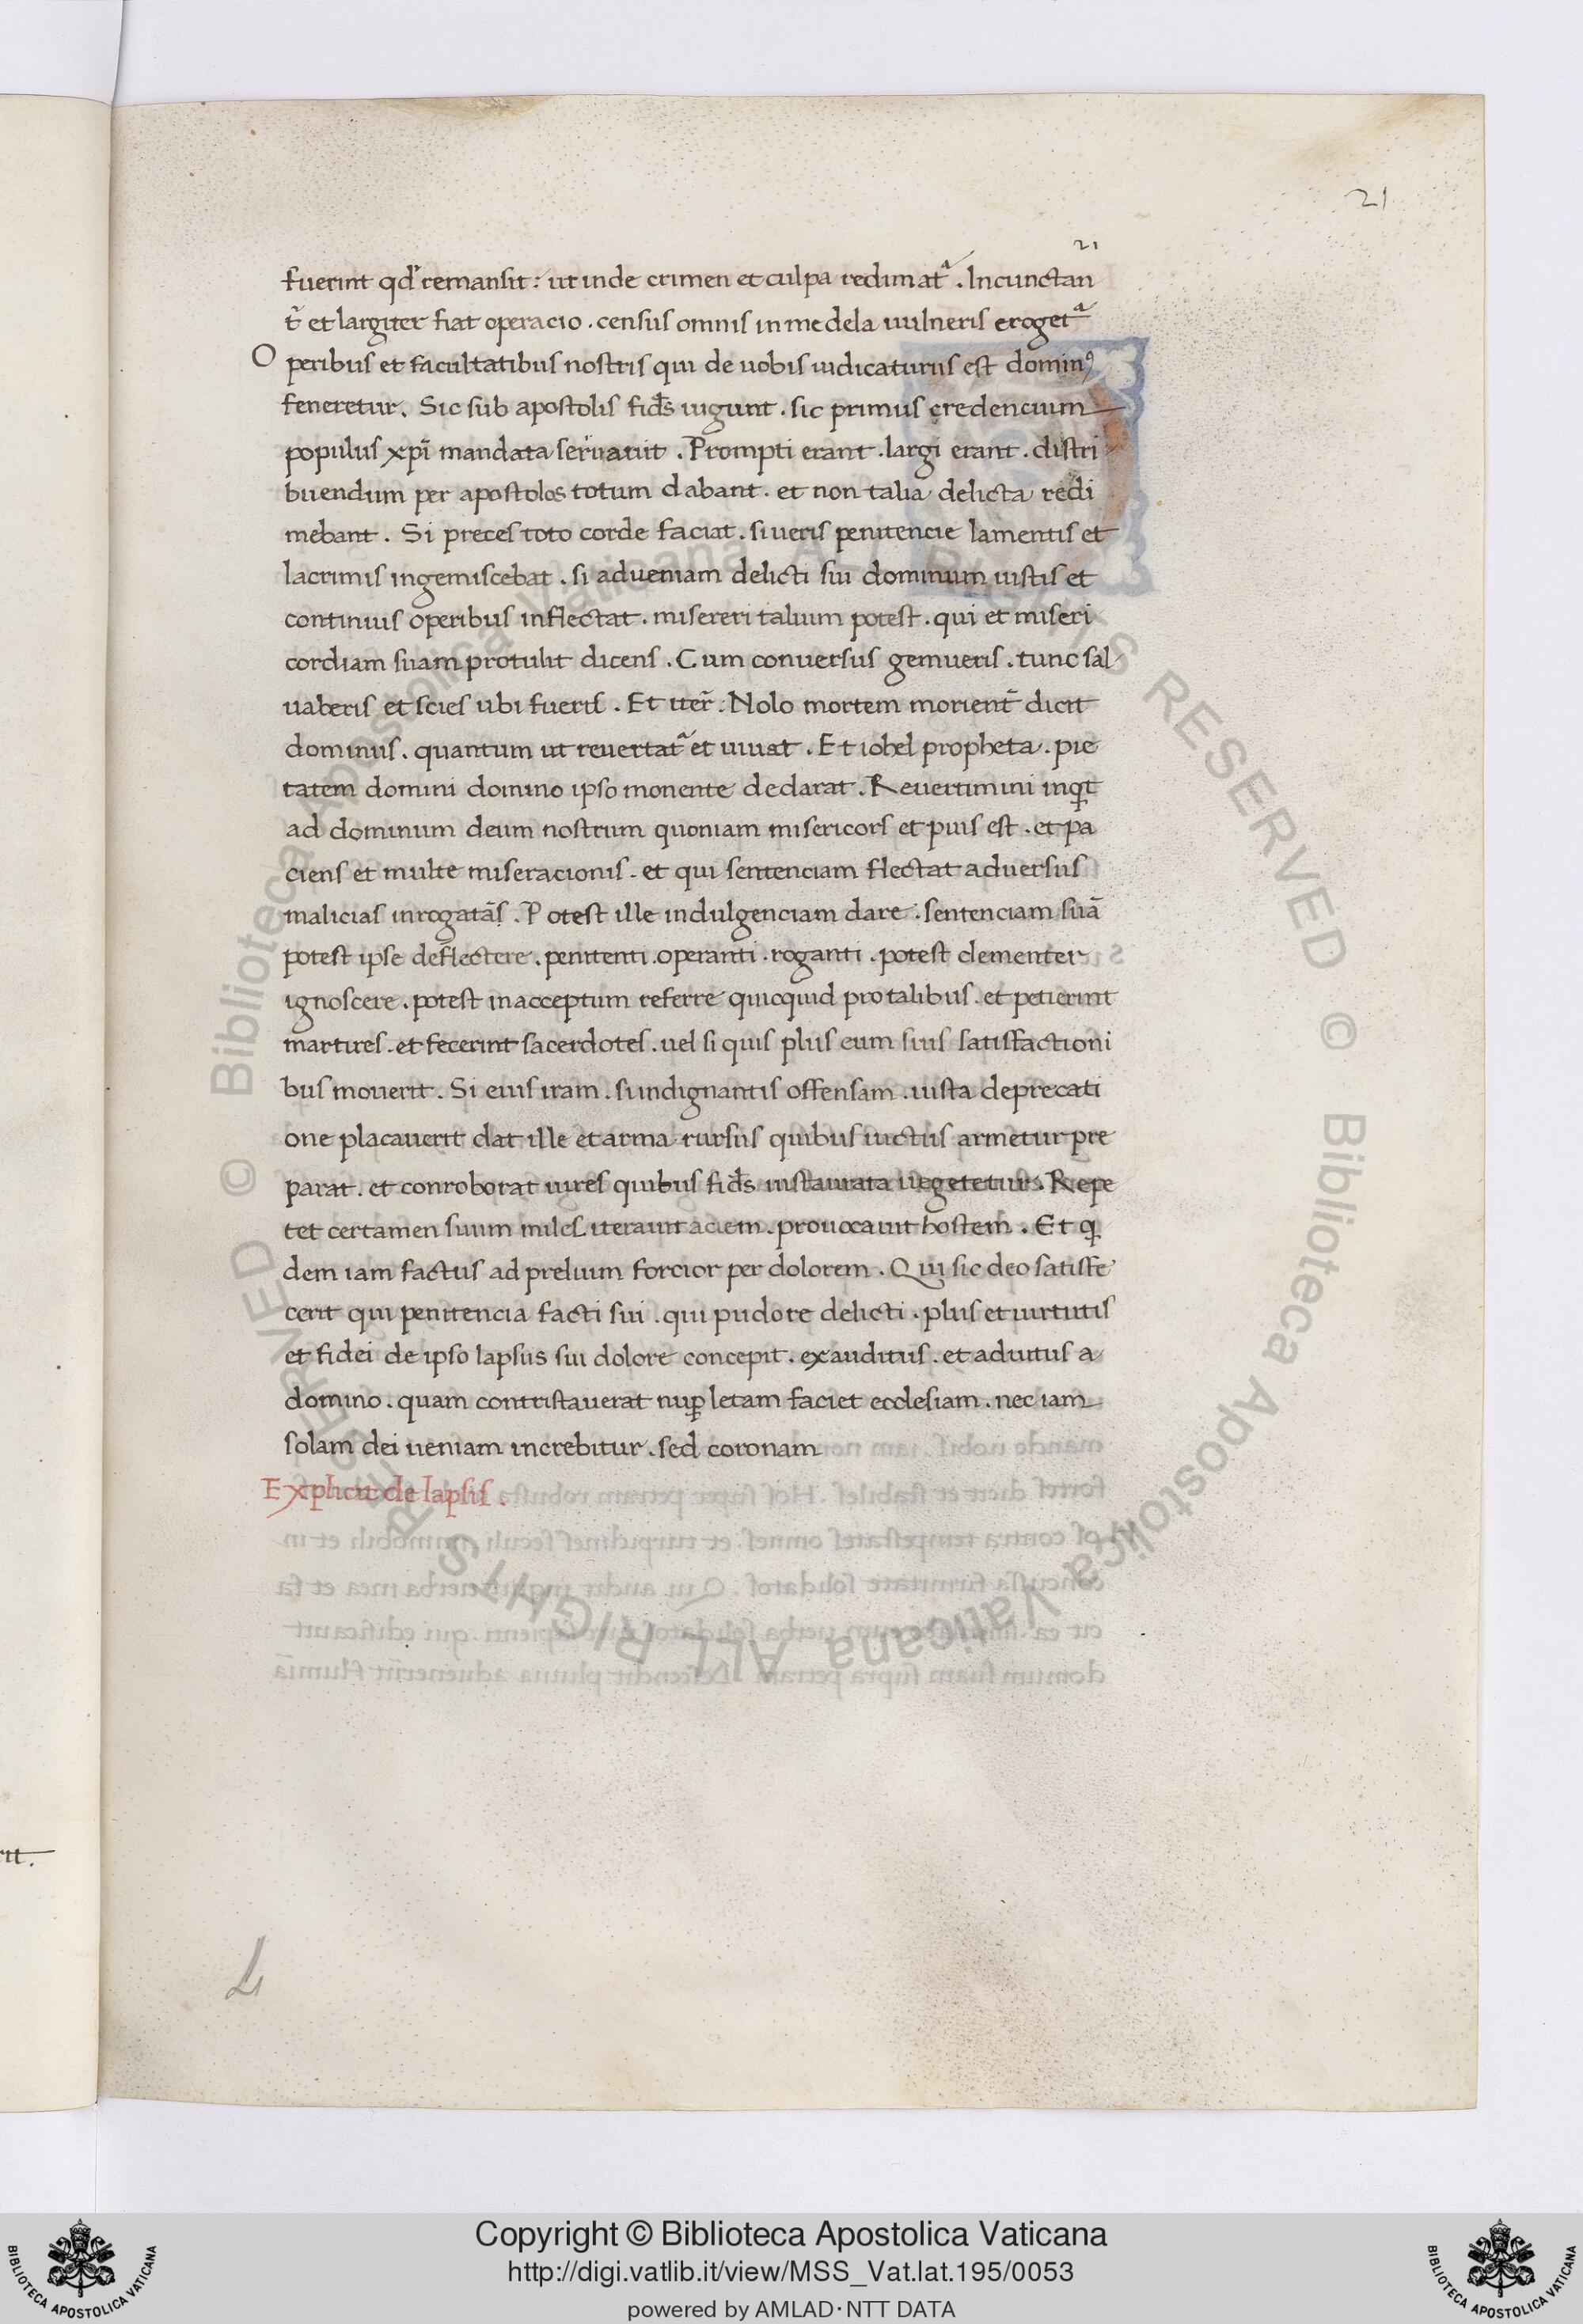 21
21
fuerint qd' remansit: ut inde crimen et culpa redimat᷑. Incunctan
t̄ et largiter fiat operacio. census omnis in medela uulneris eroget᷑
O peribus et facultatibus nostris qui de uobis iudicaturus est domin⁹
feneretur. Sic sub apostolis fid̄s uigunt. sic primus credencium
populus xp̄i mandata seruauit. Prompti erant. largi erant. distri
buendum per apostolos totum dabant. et non talia delicta redi
mebant. Si preces toto corde faciat. si ueris penitencie lamentis et
lacrimis ingemiscebat. si ad ueniam delicti sui dominum iustis et
continuis operibus inflectat. misereri talium potest. qui et miseri
cordiam suam protulit dicens. Cum conuersus gemueris. tunc sal
uaberis et scies ubi fueris. Et iter̄. Nolo mortem morient̄ dicit
dominus. quantum ut reuertat᷑ et uiuat. Et iohel propheta. pie
tatem domini domino ipso monente declarat. Reuertimini inqͥt
ad dominum deum nostrum quoniam misericors et pius est. et pa
ciens et multe miseracionis. et qui sentenciam flectat aduersus
malicias inrogatas. Potest ille indulgenciam dare. sentenciam suā
potest ipse deflectere. penitenti. operanti. roganti. potest clementer
ignoscere. potest in acceptum referre quicquid pro talibus. et petierint
martires. et fecerint sacerdotes. uel si quis plus eum suis satisfactioni
bus mouerit. Si eius iram. si indignantis offensam. iusta deprecati
one placauerit dat ille et arma rursus quibus uictus armetur pre
parat. et conroborat uires quibus fid̄s instaurata uegetetur. Repe
tet certamen suum miles iterauit aciem. prouocauit hostem. Et qͥ
dem iam factus ad prelium forcior per dolorem. Qui sic deo satisfe
cerit qui penitencia facti sui. qui pudore delicti. plus et uirtutis
et fidei de ipso lapsus sui dolore concepit. exauditus. et adiutus a
domino. quam contristauerat nuꝑ letam faciet ecclesiam. nec iam
solam dei ueniam increbitur. sed coronam
Explicit de lapsis.
© Biblioteca Apostolica Vaticana ALL RIGHTS RESERVED © Biblioteca Apostolica Vaticana ALL RIGHTS RESERVED
Copyright © Biblioteca Apostolica Vaticana
http://digi.vatlib.it/view/MSS_Vat.lat.195/0053
powered by AMLAD·NTT DATA
BIBLIOTECA APOSTOLICA VATICANA
BIBLIOTECA APOSTOLICA VATICANA